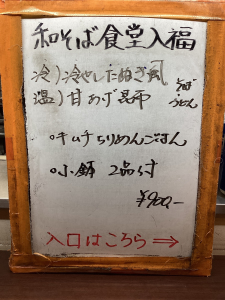 和そば食堂入福
冷）冷やしたぬき風
温）甘あげ昆布
そば
うどん
○キムチちりめんごはん
○小鉢 2品付
¥900,-
入口はこちら⇒